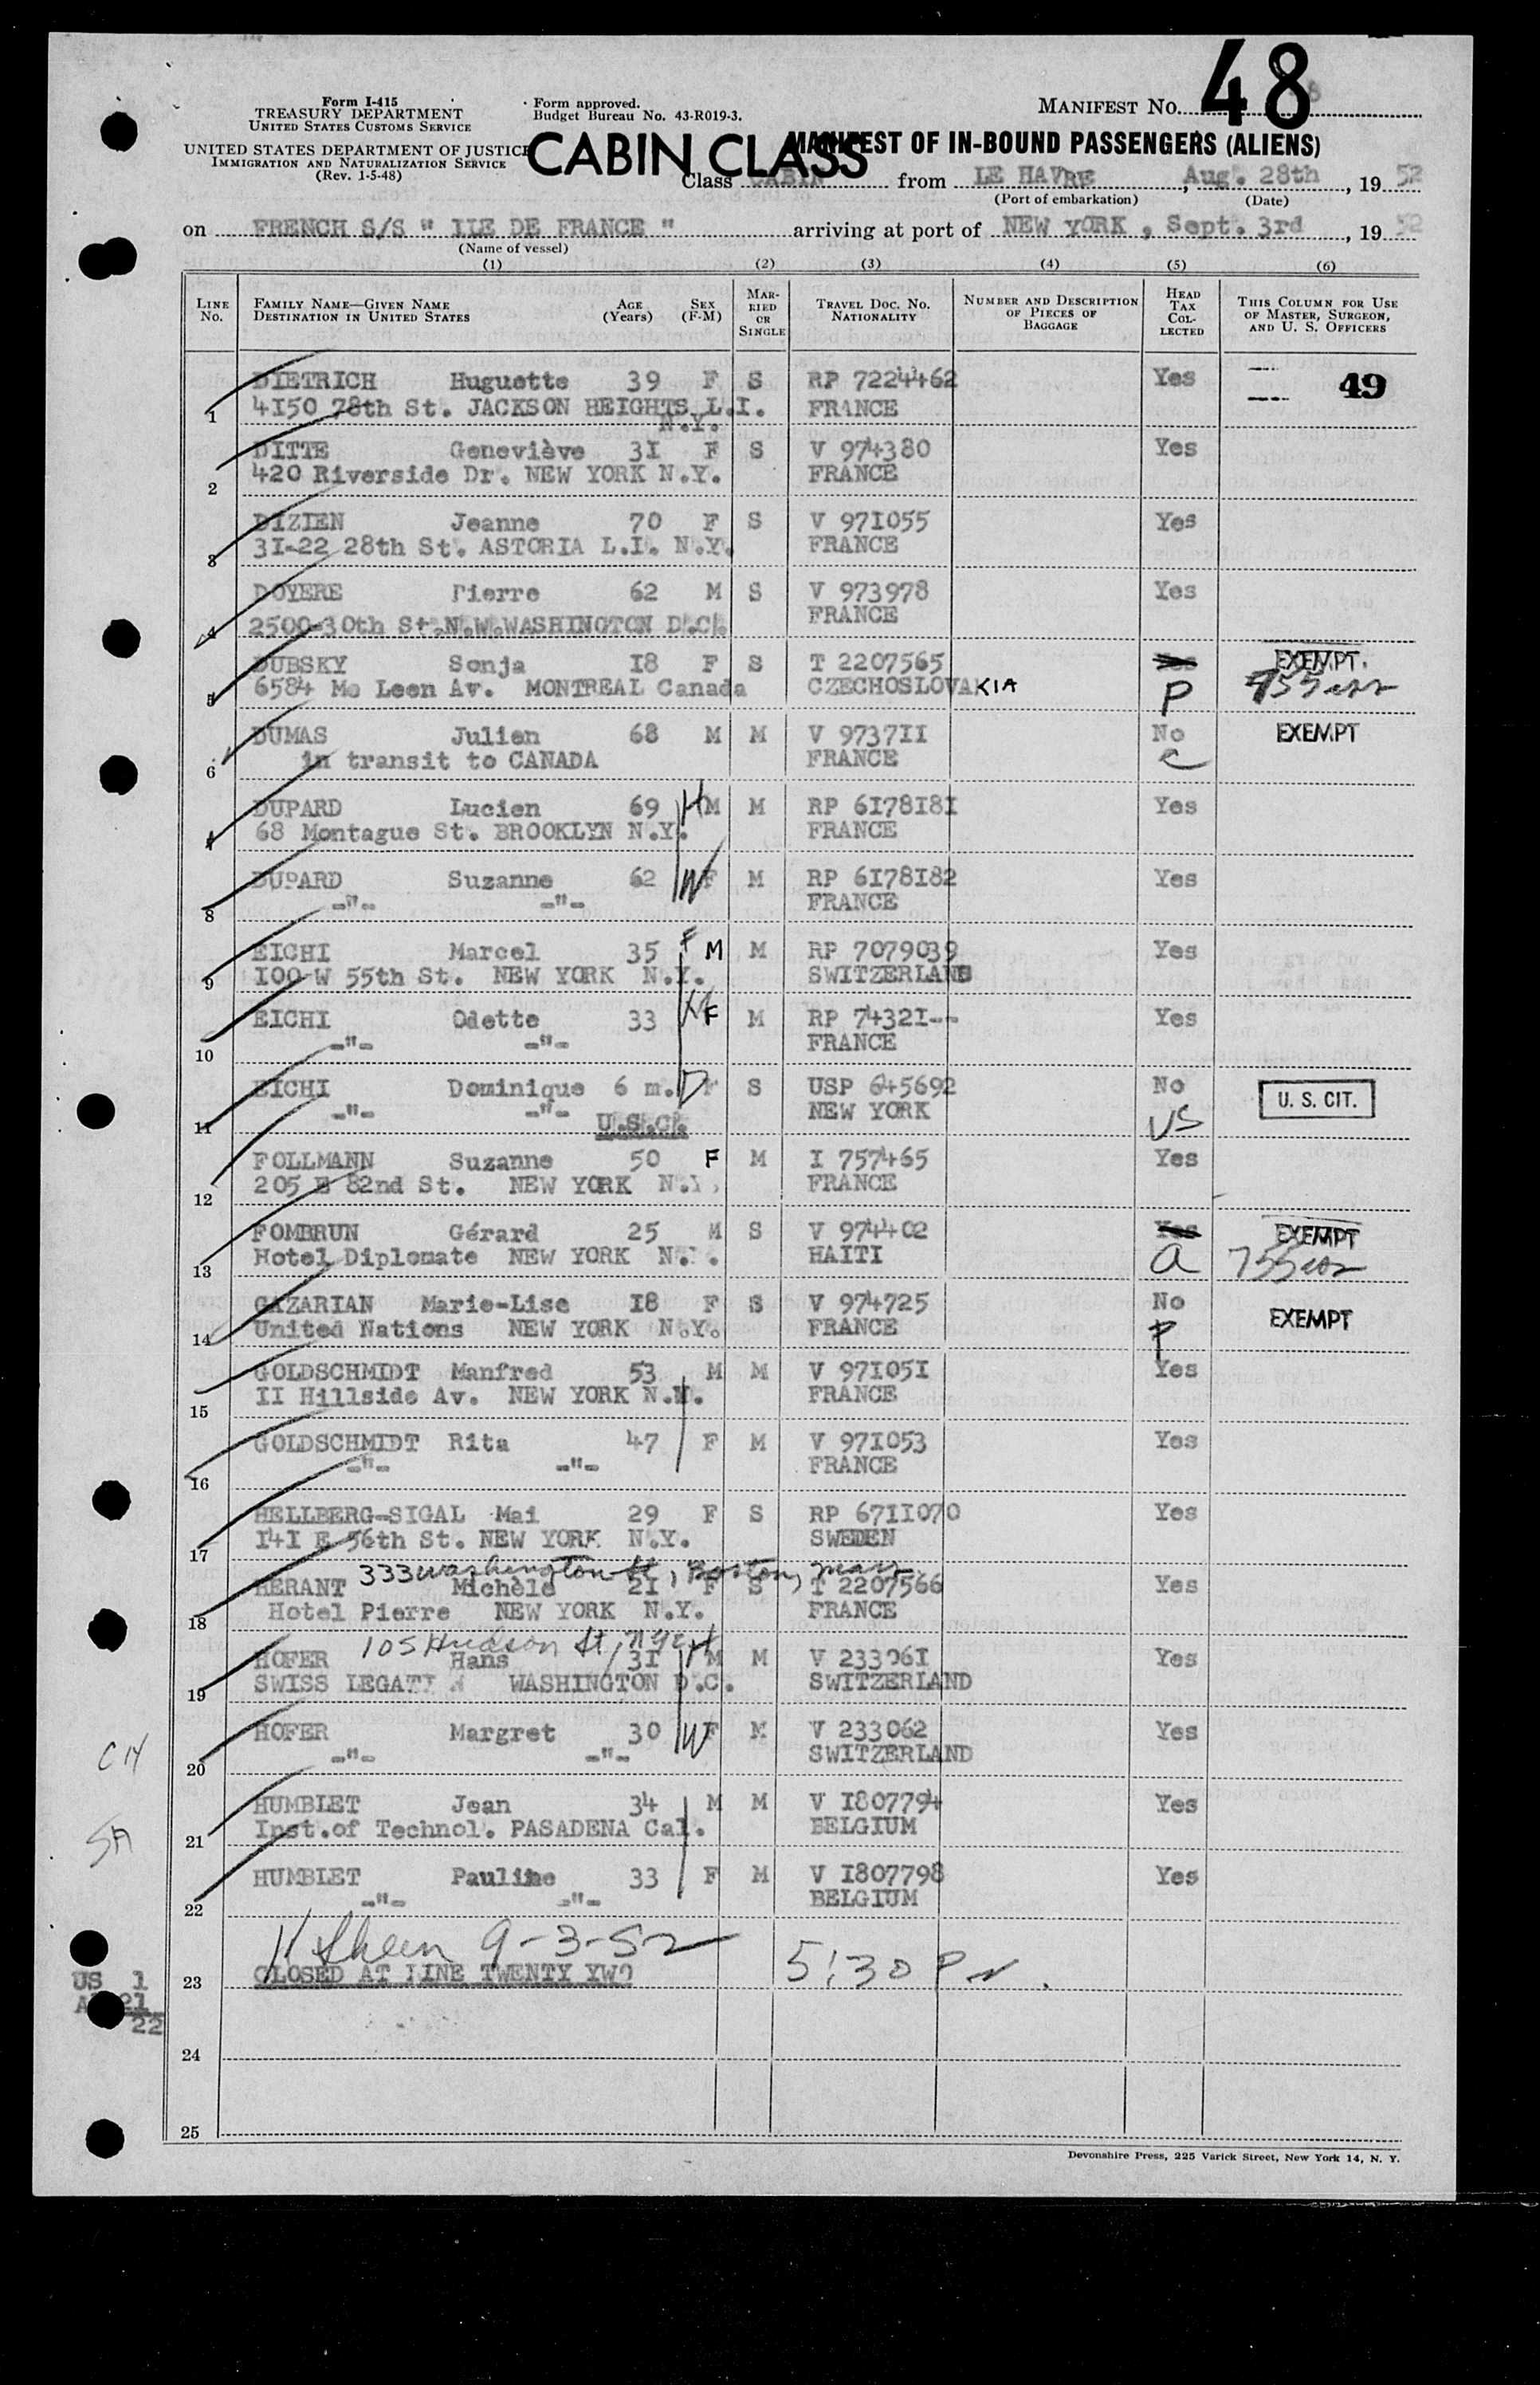 48
Form I-415
TREASURY DEPARTMENT
UNITED STATES CUSTOMS SERVICE
UNITED STATES DEPARTMENT OF JUSTICE
IMMIGRATION AND NATURALIZATION SERVICE
(Rev. 1-5-48)
Form approved.
Budget Bureau No. 43-R019-3.
MANIFEST NO.
CABIN CLASS
MANIFEST OF IN-BOUND PASSENGERS (ALIENS)
Class CABIN from LE HAVRE, Aug. 28th, 19 52
(Port of embarkation) (Date)
on FRENCH S/S " ILE DE FRANCE " arriving at port of NEW YORK, Sept. 3rd, 19 52
(Name of vessel)
(1) (2) (3) (4) (5) (6)
LINE NO. FAMILY NAME—GIVEN NAME DESTINATION IN UNITED STATES AGE (Years) SEX (F-M) MARRIED OR SINGLE TRAVEL DOC. NO. NATIONALITY NUMBER AND DESCRIPTION OF PIECES OF BAGGAGE HEAD TAX COLLECTED THIS COLUMN FOR USE OF MASTER, SURGEON, AND U. S. OFFICERS
DIETRICH Huguette 39 F S RP 7224462 Yes 49
1 4I50 78th St. JACKSON HEIGHTS L.I. FRANCE
N.Y.
DITTE Geneviève 3I F S V 974380 Yes
2 420 Riverside Dr. NEW YORK N.Y. FRANCE
DIZIEN Jeanne 70 F S V 97I055 Yes
3 3I-22 28th St. ASTORIA L.I. N.Y. FRANCE
DOYERE Pierre 62 M S V 973978 Yes
4 2500-30th St.N.W.WASHINGTON D.C. FRANCE
DUBSKY Sonja I8 F S T 2207565 Yes EXEMPT.
5 6584 Mc Leen Av. MONTREAL Canada CZECHOSLOVAKIA P
DUMAS Julien 68 M M V 9737II No EXEMPT
6 in transit to CANADA FRANCE C
DUPARD Lucien 69 H M M RP 6I78I8I Yes
7 68 Montague St. BROOKLYN N.Y. FRANCE
DUPARD Suzanne 62 W F M RP 6I78I82 Yes
8 -"- -"- FRANCE
EICHI Marcel 35 F M M RP 7079039 Yes
9 I00-W 55th St. NEW YORK N.Y. SWITZERLAND
EICHI Odette 33 M F M RP 7432I-- Yes
10 -"- -"- FRANCE
EICHI Dominique 6 m. D F S USP 645692 No U. S. CIT.
11 -"- -"- NEW YORK US
U.S.C.
FOLLMANN Suzanne 50 F M I 757465 Yes
12 205 E 82nd St. NEW YORK N.Y. FRANCE
FOMBRUN Gérard 25 M S V 974402 Yes EXEMPT
13 Hotel Diplomate NEW YORK N.Y. HAITI a
GAZARIAN Marie-Lise I8 F S V 974725 No EXEMPT
14 United Nations NEW YORK N.Y. FRANCE P
GOLDSCHMIDT Manfred 53 M M V 97I05I Yes
15 II Hillside Av. NEW YORK N.Y. FRANCE
GOLDSCHMIDT Rita 47 F M V 97I053 Yes
16 -"- -"- FRANCE
HELLBERG-SIGAL Mai 29 F S RP 67II070 Yes
17 I4I E 56th St. NEW YORK N.Y. SWEDEN
333 Washington St, Boston, Mass
HERANT Michèle 2I F S T 2207566 Yes
18 Hotel Pierre NEW YORK N.Y. FRANCE
105 Hudson St, NYC
HOFER Hans 3I H M M V 23306I Yes
19 SWISS LEGATI N WASHINGTON D.C. SWITZERLAND
HOFER Margret 30 W F M V 233062 Yes
20 -"- -"- SWITZERLAND
HUMBLET Jean 34 M M V I807794 Yes
21 Inst.of Technol. PASADENA Cal. BELGIUM
HUMBLET Pauline 33 F M V I807798 Yes
22 -"- -"- BELGIUM
9-3-52 5:30 P
23 CLOSED AT LINE TWENTY YWO
US 1
21
22
24
25
Devonshire Press, 225 Varick Street, New York 14, N. Y.